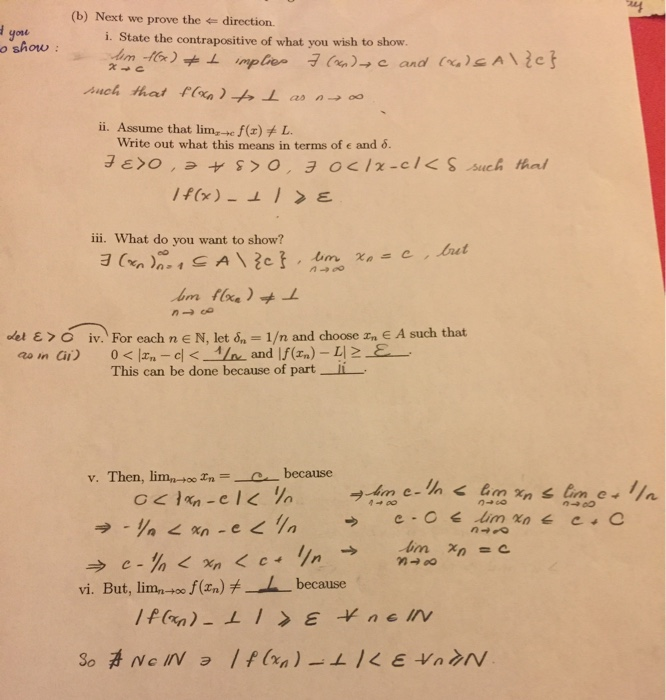 (b) Next we prove the ⇐ direction.
you
o show :
i. State the contrapositive of what you wish to show.
lim f(x) ≠ L implies ∃ (xn) → c and (xn) ⊆ A \ {c}
x→c
such that f(xn) ↛ L as n → ∞
ii. Assume that lim_{x→c} f(x) ≠ L.
Write out what this means in terms of ϵ and δ.
∃ ε>0, ∋ ∀ δ>0, ∃ 0<|x-c|<δ such that
|f(x) - L| ≥ ε
iii. What do you want to show?
∃ (xn)_{n=1}^∞ ⊆ A \ {c}, lim_{n→∞} xn = c, but
lim f(xn) ≠ L
n→∞
Let ε>0 iv. For each n ∈ N, let δn = 1/n and choose xn ∈ A such that
as in (ii) 0 < |xn − c| < 1/n and |f(xn) − L| ≥ ε.
This can be done because of part ii.
v. Then, lim_{n→∞} xn = c because
0 < |xn - c| < 1/n ⇒ lim_{n→∞} c - 1/n ≤ lim_{n→∞} xn ≤ lim_{n→∞} c + 1/n
⇒ - 1/n < xn - c < 1/n ⇒ c - 0 ≤ lim_{n→∞} xn ≤ c + 0
⇒ c - 1/n < xn < c + 1/n ⇒ lim_{n→∞} xn = c
vi. But, lim_{n→∞} f(xn) ≠ L because
|f(xn) - L| ≥ ε ∀ n ∈ ℕ
So ∄ N ∈ ℕ ∋ |f(xn) - L| < ε ∀ n ≥ N